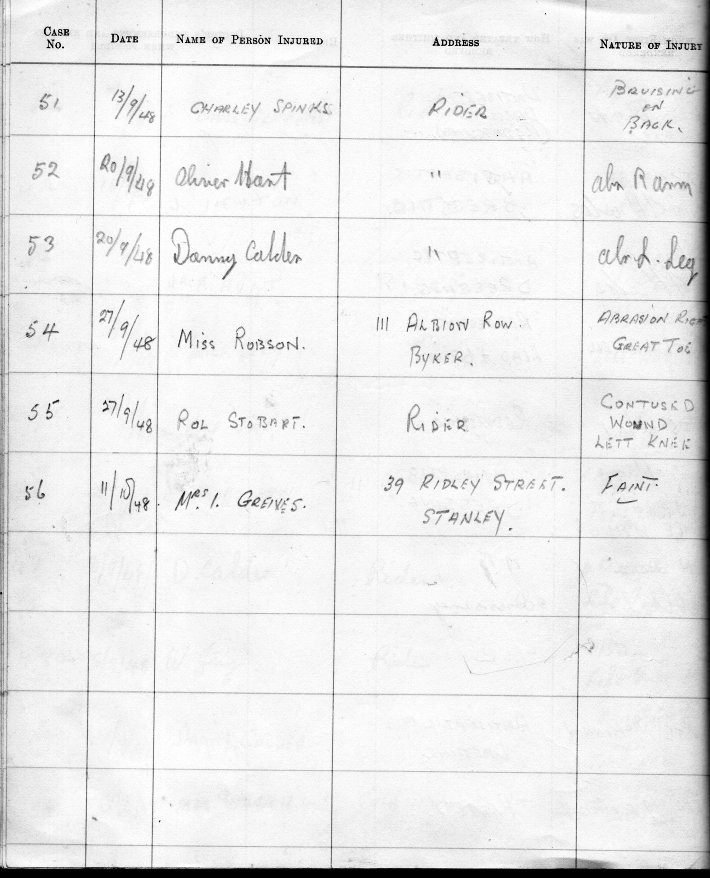 CASE No. DATE NAME OF PERSON INJURED ADDRESS NATURE OF INJURY
51 13/9/48 CHARLEY SPINKS RIDER BRUISING
ON
BACK.
52 20/9/48 Oliver Hart " abr R arm
53 20/9/48 Danny Calder " abr L. Leg
54 27/9/48 MISS ROBSON. 111 ALBION ROW. ABRASION RIGH
BYKER. GREAT TOE
55 27/9/48 ROL STOBART. RIDER CONTUSED
WOUND
LETT KNEE
56 11/10/48 MRS I. GREIVES. 39 RIDLEY STREET. FAINT
STANLEY.